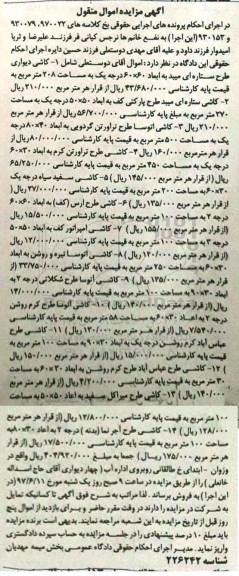 آگهی مزایده اموال منقول
در اجرای احکام پرونده های اجرایی حقوقی بخ کلاسه های ۹۷۰۰۲۲، ۹۳۰۰۷۹
و ۹۳۰۱۵۳(این اجرا) به نفع خانم ها نرجس کیانی فر فرزند علیرضا و ثریا
امیدوار فرزند داود و علیه آقای مهدی دوستعلی فرزند حسین دایره اجرای احکام
حقوقی این دادگاه در نظر دارد: اموال آقای دوستعلی شامل ۱- کاشی دیواری
طرح ستاره ای میبد به ابعاد ۶۰×۳۰ درجه یک به مساحت ۲۰۸ متر مربع به
قیمت پایه کارشناسی ۴۳/۶۸۰/۰۰۰ ریال (از قرار هر متر مربع ۲۱۰/۰۰۰ ریال
۲- کاشی ستاره ای میبد طرح پارکتی کف به ابعاد ۵۰×۵۰ درجه یک به مساحت
۲۷۰ متر مربع به مبلغ پایه کارشناسی ۵۶/۷۰۰/۰۰۰ ریال (از قرار هر متر مربع
۲۱۰/۰۰۰ ریال ۳- کاشی اتوسا طرح تراورتن گردویی به ابعاد ۴۰×۸۰ درجه
یک به مساحت ۵۰۰ متر مربع به قیمت پایه کارشناسی ۸۰/۰۰۰/۰۰۰ ریال از
قرار هر متر مربع ۱۶۰/۰۰۰ ریال ۴- کاشی طرح تراورتن کرم به ابعاد ۳۰×۶۰
درجه یک به مساحت ۴۵۰ متر مربع به قیمت پایه کارشناسی ۶۵/۲۵۰/۰۰۰
ریال (از قرار هر متر مربع ۱۴۵/۰۰۰ ریال) ۵- کاشی سفید سیاه درجه یک
۳۰×۶۰ به مساحت ۲۰۰ متر مربع به قیمت پایه کارشناسی ۲۷/۰۰۰/۰۰۰ ریال
(از قرار هر متر مربع ۱۳۵/۰۰۰ ریال) ۶- کاشی طرح ارس (کف) به ابعاد ۶۰×۶۰
درجه ۲ به مساحت ۱۰۰ متر مربع به قیمت پایه کارشناسی ۱۵/۵۰۰/۰۰۰ ریال
(از قرار هر متر مربع ۱۵۵/۰۰۰ ریال) ۷- کاشی امپراتور کف به ابعاد ۵۰×۵۰
درجه ۳ به مساحت ۱۰۰ متر مربع به قیمت پایه کارشناسی ۱۲/۰۰۰/۰۰۰ ریال
(از قرار هر متر مربع ۱۲۰/۰۰۰ ریال) ۸- کاشی اتوسا تیره و روشن به ابعاد
۳۰×۶۰ به مساحت ۲۵۰ متر مربع به قیمت پایه کارشناسی ۳۳/۷۵۰/۰۰۰ ریال
(از قرار هر متر مربع ۱۳۵/۰۰۰ ریال) ۹- کاشی آتوسا طرح شکلاتی درجه ۲ به
ابعاد ۳۰×۹۰ به مساحت ۱۰۰ متر مربع به قیمت پایه کارشناسی ۱۴/۰۰۰/۰۰۰
ریال (از قرار هر متر مربع ۱۴۰/۰۰۰ ریال) ۱۰- کاشی آتوسا طرح کرم روشن
درجه ۲ به ابعاد ۶۰×۳۰ به مساحت ۵۸ متر مربع به قیمت پایه کارشناسی
۷/۵۴۰/۰۰۰ ریال (از قرار هر متر مربع ۱۳۰/۰۰۰ ریال) ۱۱- کاشی طرح
عباس آباد کرم روشن درجه یک به ابعاد ۹۰×۳۰ به مساحت ۱۰۰ متر مربع به
قیمت پایه کارشناسی ۱۵/۰۰۰/۰۰۰ ریال (از قرار هر متر مربع ۱۵۰/۰۰۰ ریال
) ۱۲- کاشی طرح عباس آباد طرح کرم روشن به ابعاد ۳۰×۶۰ به مساحت
۳۰ متر مربع به قیمت پایه کارشناسی ۴/۲۰۰/۰۰۰ ریال (از قرار هر متر مربع
۱۴۰/۰۰۰ ریال) ۱۳- کاشی طرح میراکل سفید به ابعاد ۵۰×۵۰ به مساحت
۱۰۰ متر مربع به قیمت پایه کارشناسی ۱۲/۸۰۰/۰۰۰ ریال (از قرار هر متر مربع
۱۲۸/۰۰۰ ریال) ۱۴- کاشی طرح آجر نما (بدنه) درجه ۲ به ابعاد ۳۰×۹۰ به
مساحت ۱۰۰ متر مربع به قیمت پایه کارشناسی ۱۷/۵۰۰/۰۰۰ ریال (از قرار هر
متر مربع ۱۷۵/۰۰۰ ریال) جمعا به مبلغ ۴۰۴/۹۲۰/۰۰۰ ریال واقع در
وزوان - ابتدای خ طالقانی روبروی اداره آب (چهار دیواری آقای حاج اسداله
خانعلی) را از طریق مزایده در ساعت ۹ صبح روز یک شنبه مورخ ۹۷/۶/۱۱ (در
این اجرا) به فروش برساند. لذا مراتب به شرح فوق آگهی تا کسانیکه تمایل
به شرکت در مزایده را دارند در وقت مقرر حاضر و برای بازدید از اموال پنج
روز قبل از تاریخ مزایده به این شعبه مراجعه نمایند. بدیهی است برنده مزایده
باید مبلغ ۱۰ درصد پیشنهادی را در جلسه مزایده به حساب سپرده دادگستری
واریز نماید. مدیر اجرای احکام حقوقی دادگاه عمومی بخش میمه مهدیان
شناسه ۲۲۶۲۴۲